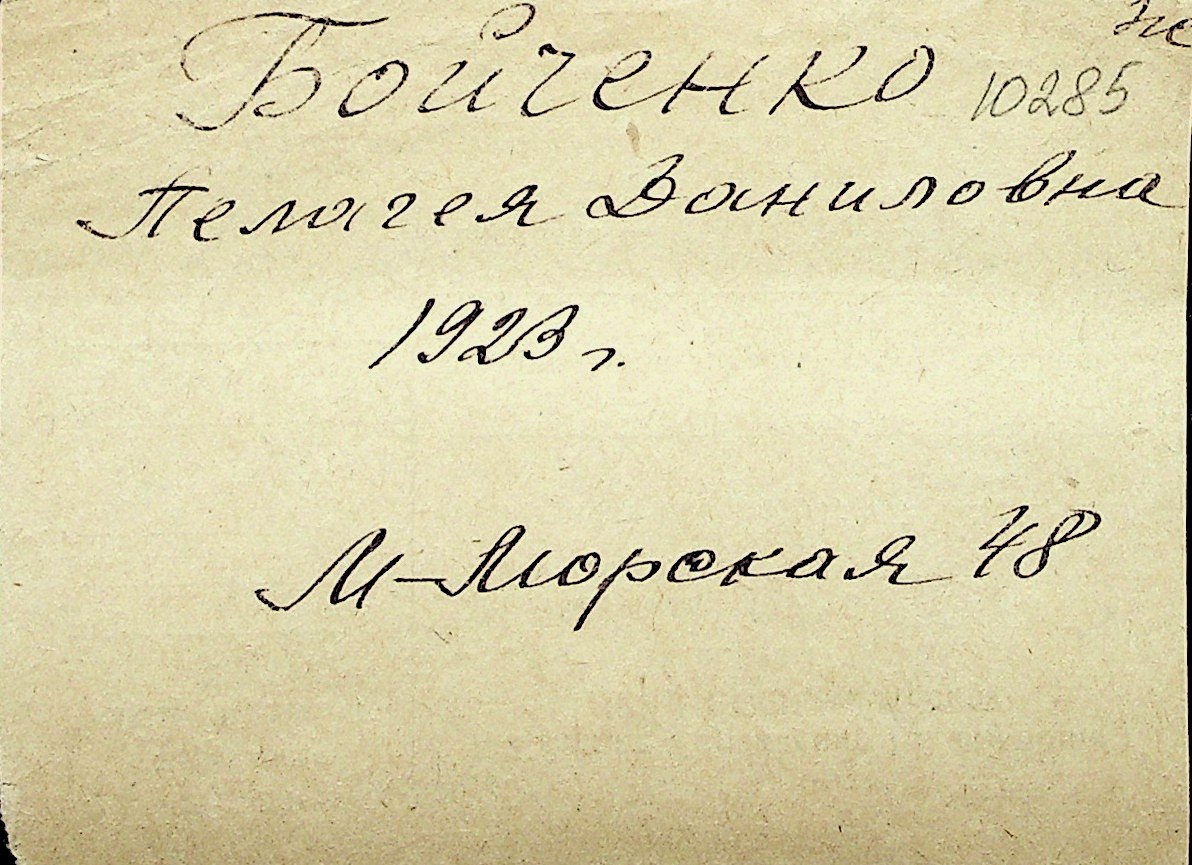 Бойченко 10285
Пелагея Даниловна
1923 г.
М-Морская 48